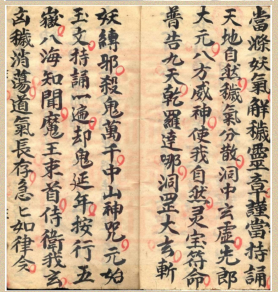 當滌妖氣解穢靈章謹當持誦
天地自然穢氣分散洞中玄虛光郎
大元八方威神使我自然灵宝符命
普告九天乾羅達哪洞罡大玄斬
妖縛邪殺鬼萬千中山神咒元始
玉文持誦一遍却鬼延年按行五
嶽八海知聞魔王束首侍衛我玄
凶穢消蕩道氣長存急匕如律令